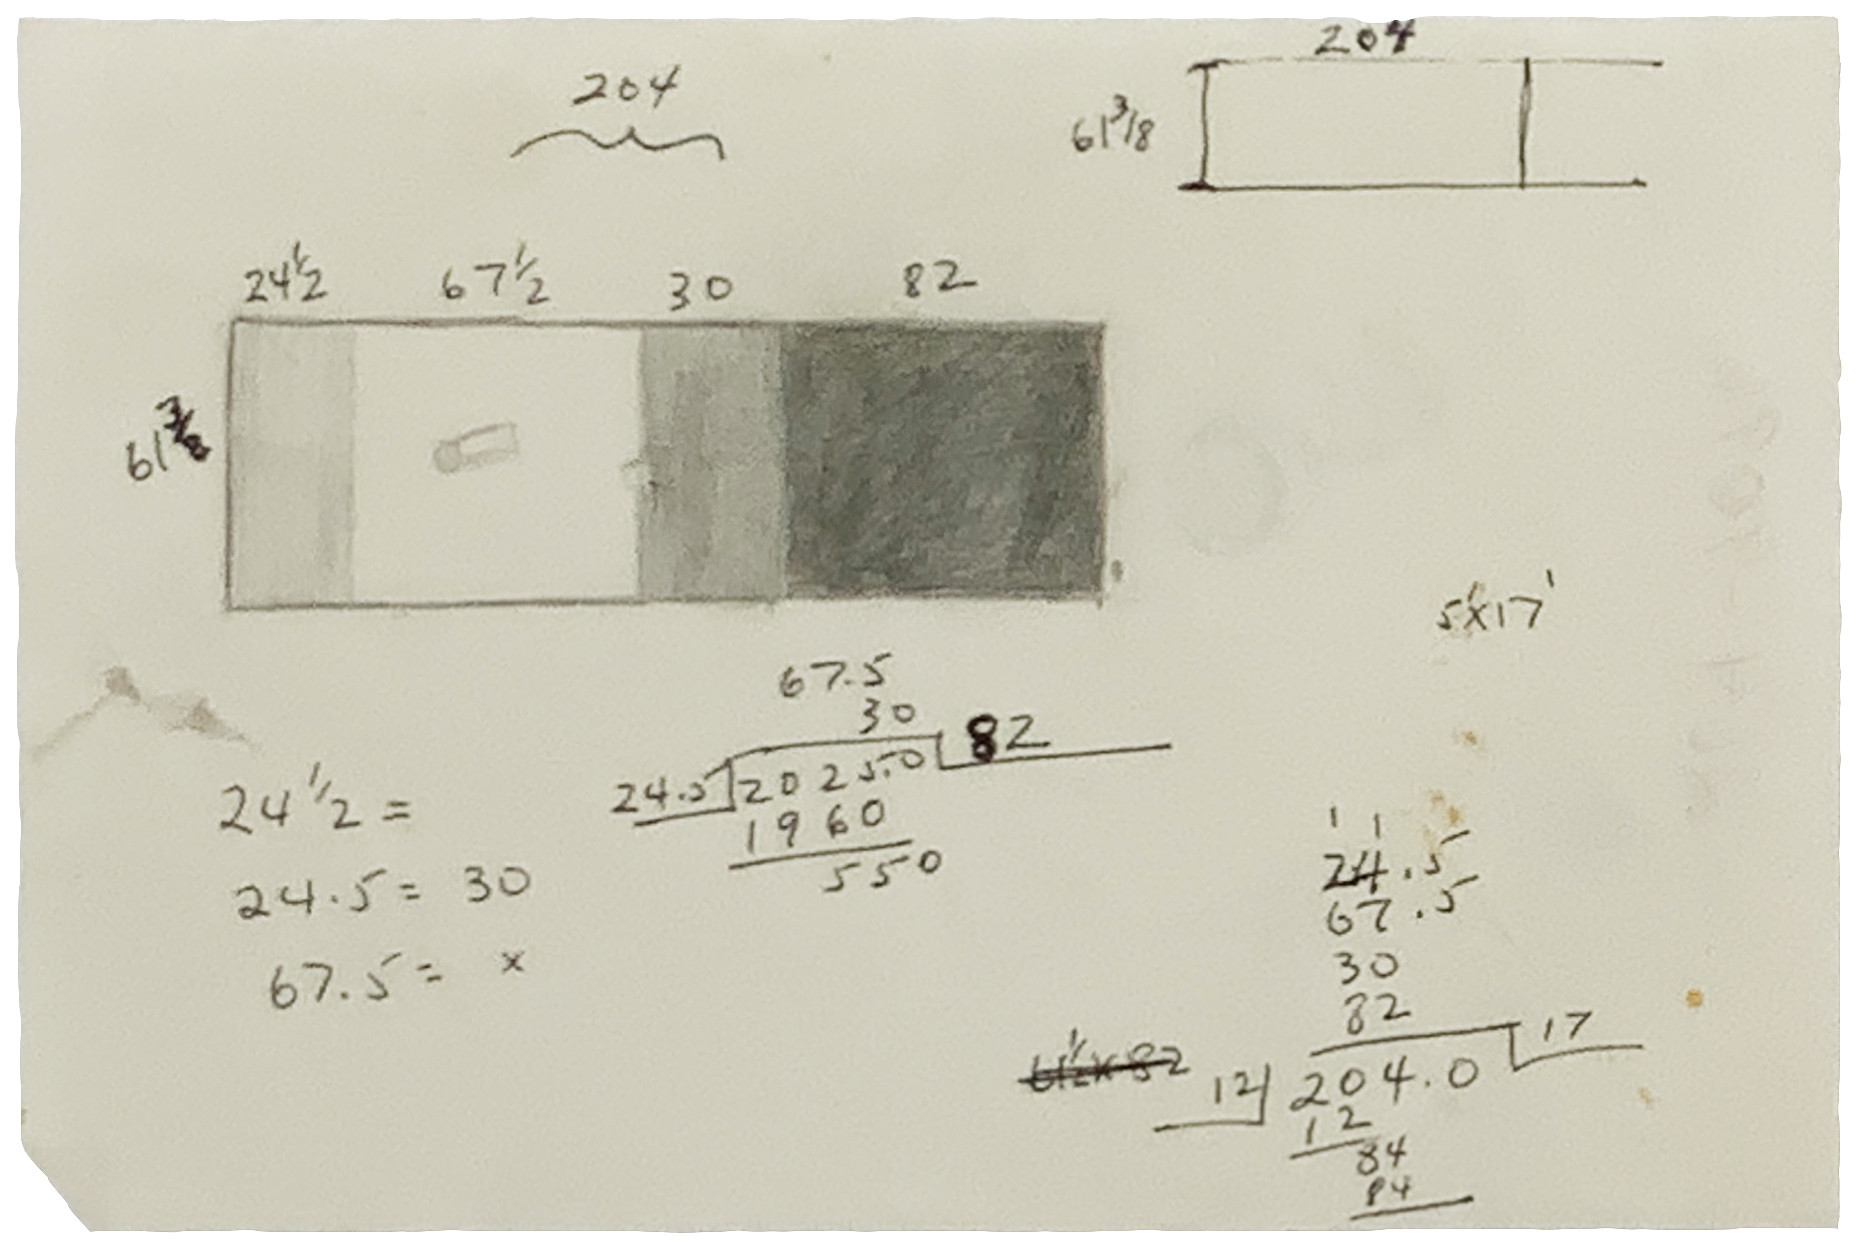 204
204
61 3/8
24 1/2 67 1/2 30 82
61 3/8
5'x17'
67.5
30
24.5 2025.0 82
1960
550
24 1/2 =
24.5 = 30
67.5 = x
1 1
24.5
67.5
30
82
61 1/2 x 82
12 204.0 17
12
84
84